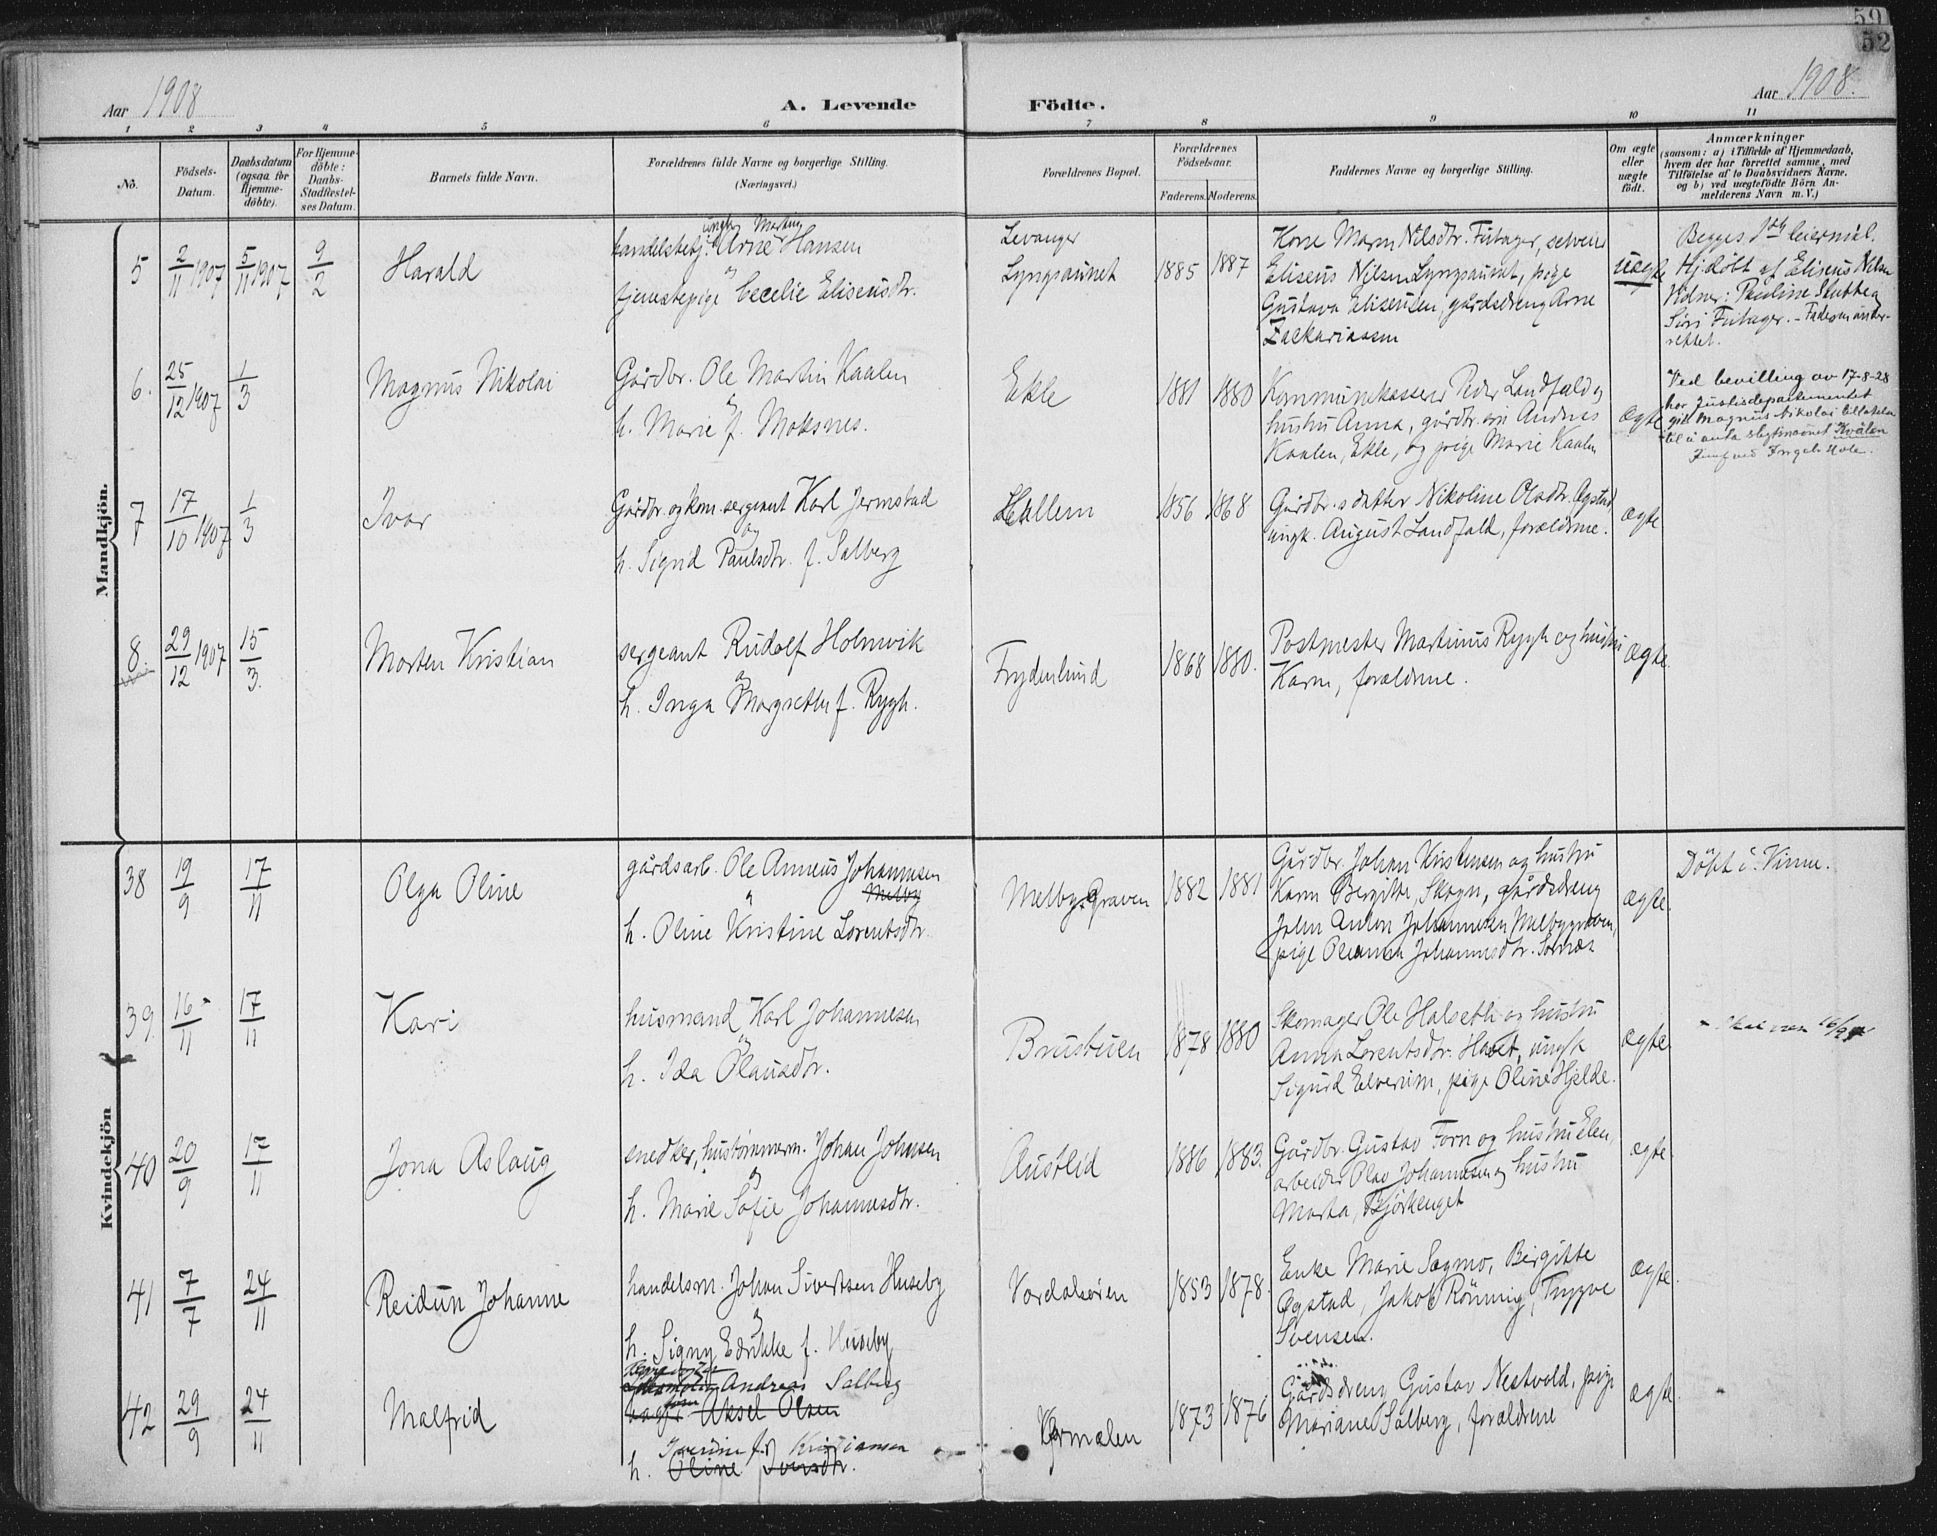 59
52
Aar 1908
A. Levende
Födte.
Aar 1908.
1 2 3 4 5 6 7 8 9 10 11
No.
Födsels-
Datum.
Daabsdatum
(ogsaa for
Hjemme-
döbte).
For Hjemme-
döbte:
Daabs-
Stadfæstel-
ses Datum.
Barnets fulde Navn.
Forældrenes fulde Navne og borgerlige Stilling.
(Næringsvei.)
Forældrenes Bopæl.
Forældrenes
Födselsaar.
Faderens. Moderens.
Faddernes Navne og borgerlige Stilling.
Om ægte
eller
uægte
födt.
Anmærkninger
(saasom: a) i Tilfælde af Hjemmedaab,
hvem der har forrettet samme, med
Tilföielse af to Daabsvidners Navne.
og b) ved uægtefödte Börn An-
melderens Navn m. V.)
Mandkjön.
5
2/11 1907
5/11 1907
9/2
Harald
ungk. Martin
handelsbetj. Arne Hansen
og
tjenestepige Cecelie Eliseusdtr.
Levanger
Lyngsaunet
1885
1887
Kone Maren Nilsdtr. Fiitager, selveier
Eliseus Nilsen Lyngsaunet, pige
Gustava Eliseusen, gårdsdreng Arne
Zackariassen
uægte
Begges 1ste leiermål.
Hj.döbt af Eliseus Nilsen
Vidner: Pauline Slubbe og
Siri Fiitager. - Faderen under-
rettet.
6.
25/12 1907
1/3
Magnus Nikolai
Gårdbr. Ole Martin Kaalen
og
h. Marie f. Moksnes.
Ekle
1881
1880
Kommunekasserer Peder Landfald og
hustru Anna, gårdbr. sön Andreas
Kaalen, Ekle, og pige Marie Kaalen
ægte
Ved bevilling av 17-8-28
har Justisdepartementet
git Magnus Nikolai tillatelse
til å anta slegtsnavnet Kvålen
7
17/10 1907
1/3
Ivar
Gårdbr. og kom.sergeant Karl Jermstad
og
h. Sigrid Paulsdtr. f. Salberg
Hallem
1856
1868
Gårdbr.s datter Nikoline Olsdtr. Øgstad
ungk. August Landfald, forældrene.
ægte
8.
29/12 1907
15/3.
Morten Kristian
sergeant Rudolf Holmvik
og
h. Inga Margrethe f. Rygh.
Frydenlund
1868
1880.
Postmester Martinus Rygh og hustru
Karen, forældrene.
ægte.
Kvindekjön
38
19/9
17/11
Olga Oline
gårdsarb. Ole Anneus Johannesen
Melby
og
h. Oline Kristine Lorentsdtr.
Melbygraven
1882
1881
Gårdbr. Johan Kristensen og hustru
Karen Bergitte, Skogn, gårdsdreng
John Anton Johannesen Melbygraven,
pige Oleanna Johannesdtr. Sörnes
ægte.
Döbt i Vinne.
39.
16/11
17/11
Kari
husmand Karl Johannesen
og
h. Ida Olausdtr.
Brustuen
1878
1880
Skomager Ole Halseth og hustru
Anna Lorentsdtr. Hovet, ungk.
Sigurd Elverum, pige Oline Hjelde.
ægte.
40
20/9
17/11
Jona Aslaug
snedker, hustömmerm. Johan Johnsen
og
h. Marie Sofie Johannesdtr.
Austlid
1886
1883.
Gårdbr. Gustav Forn og hustru Elen,
arbeider Olav Johannesen og hustru
Marta, Björkenget
ægte.
41
7/7
24/11
Reidun Johanne
handelsm. Johan Sivertsen Huseby
og
h. Signy Edrikke f. Huseby
Værdalsören
1853
1878.
Enke Marie Sagmo, Bergitte
Øgstad, Jakob Rönning, Trygve
Svensen.
ægte.
42
29/9
24/11
Malfrid
Andreas Salberg
Aksel Olsen
Kristiansen
h. Oline Iversdtr.
Vermalen
1873
1876
Gårdsdreng Gustav Nestvold, pige
Mariane Salberg, forældrene
ægte.